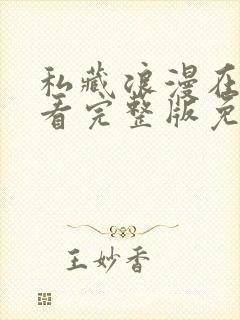 私藏浪漫在
看完整版免
王妙香